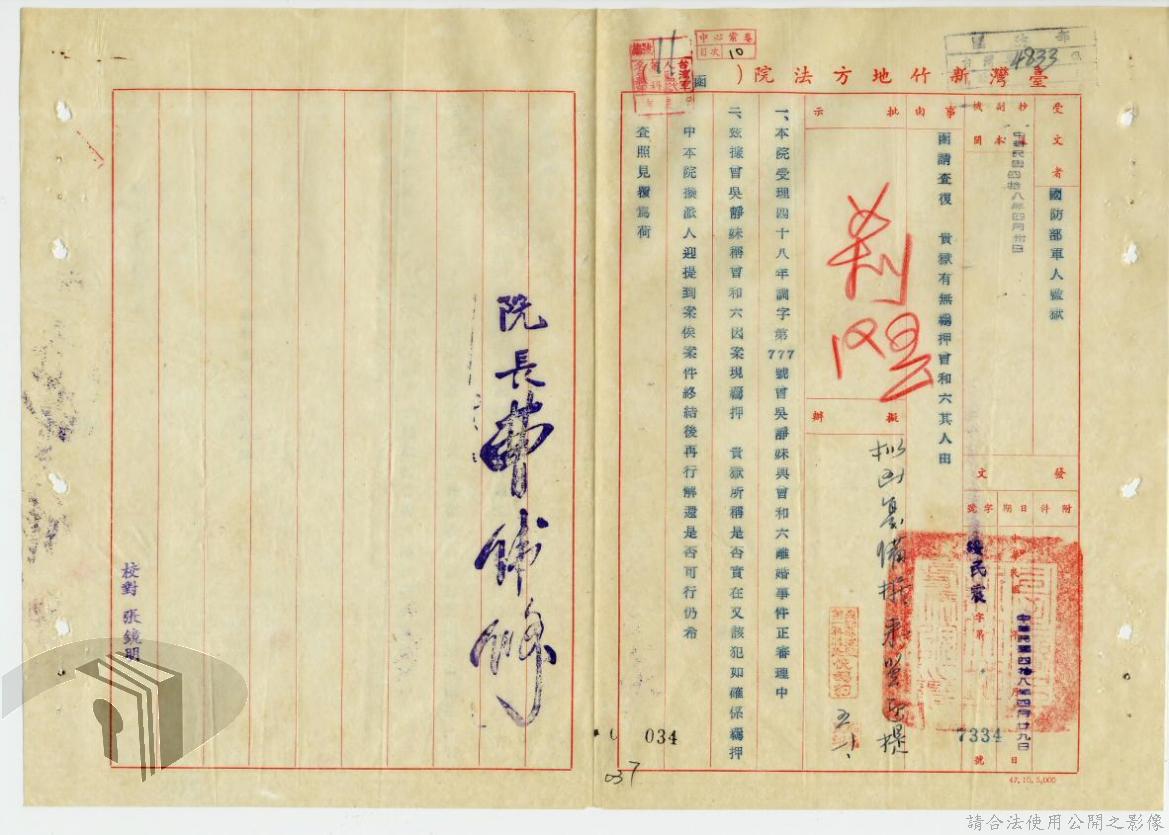 臺灣新竹地方法院（ ）函
中心案卷
目次 10
4833
受文者
國防部軍人監獄
抄副本機關
中華民國四拾八年四月卅日
事由
函請查復　貴獄有無羈押曾和六其人由
批示
擬辦
發文
附件
日期
字號
中華民國四拾八年四月廿九日
民家
字第
7334
號
一、本院受理四十八年調字第777號曾吳靜妹與曾和六離婚事件正審理中
二、玆據曾吳靜妹稱曾和六因案現羈押　貴獄所稱是否實在又該犯如確係羈押
中本院擬派人迎提到案俟案件終結後再行解還是否可行仍希
查照見覆為荷
院長
校對 張鏡明
034
037
47.10.5,000
請合法使用公開之影像